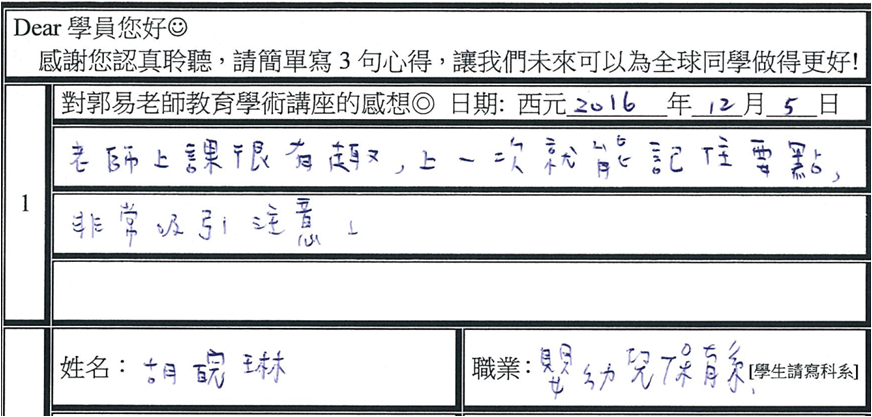 Dear 學員您好☺
感謝您認真聆聽，請簡單寫 3 句心得，讓我們未來可以為全球同學做得更好!
對郭易老師教育學術講座的感想◎ 日期: 西元 2016 年 12 月 5 日
1
老師上課很有趣，上一次就能記住要點，
非常吸引注意。
姓名： 胡琳
職業： 嬰幼兒保育系 [學生請寫科系]